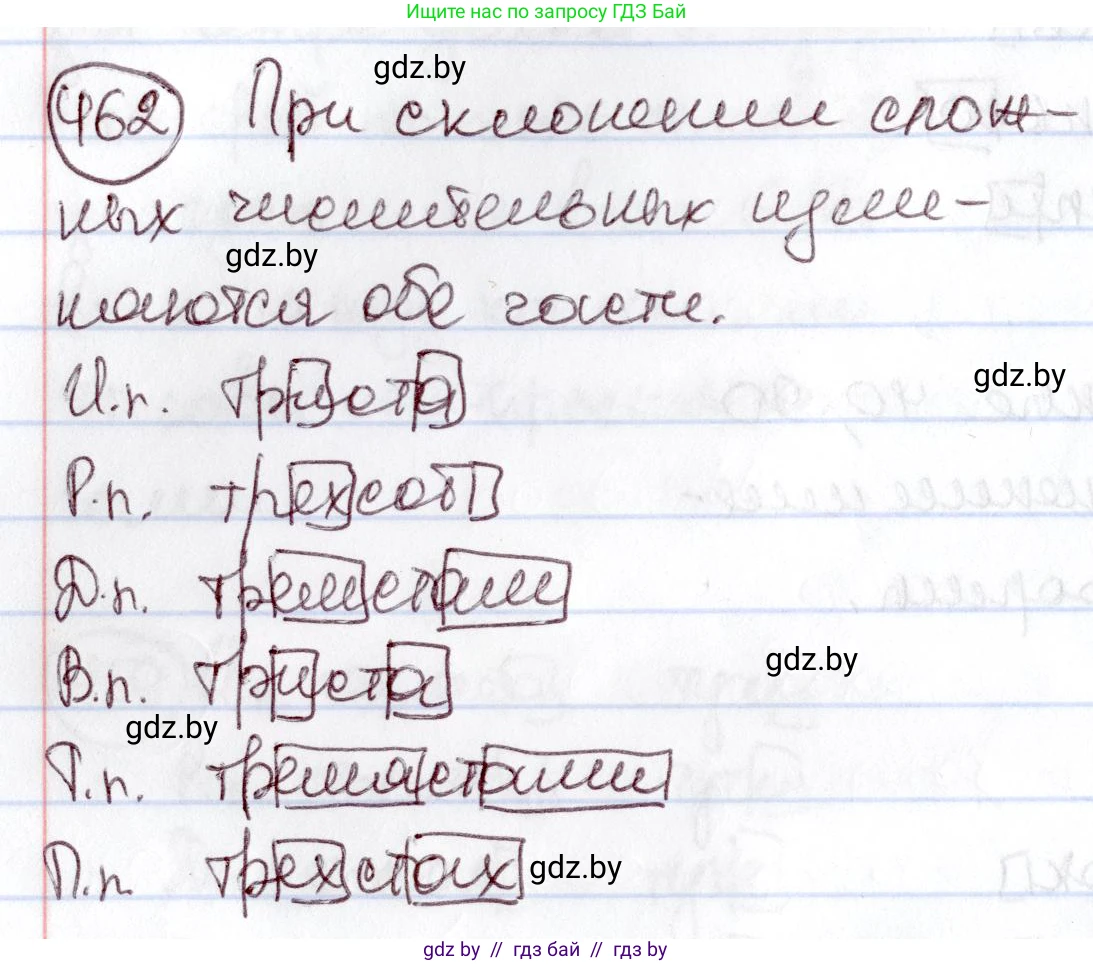 Ищите нас по запросу ГДЗ Бай
gdz.by
462 При склонении слож-
ных числительных изме-
gdz.by
няются обе части.
gdz.by
И.п. триста
Р.п. трехсот
Д.п. тремстам
gdz.by
В.п. триста
gdz.by
Т.п. тремястами
П.п. трехстах gdz.by
gdz.by // гдз бай // гдз by